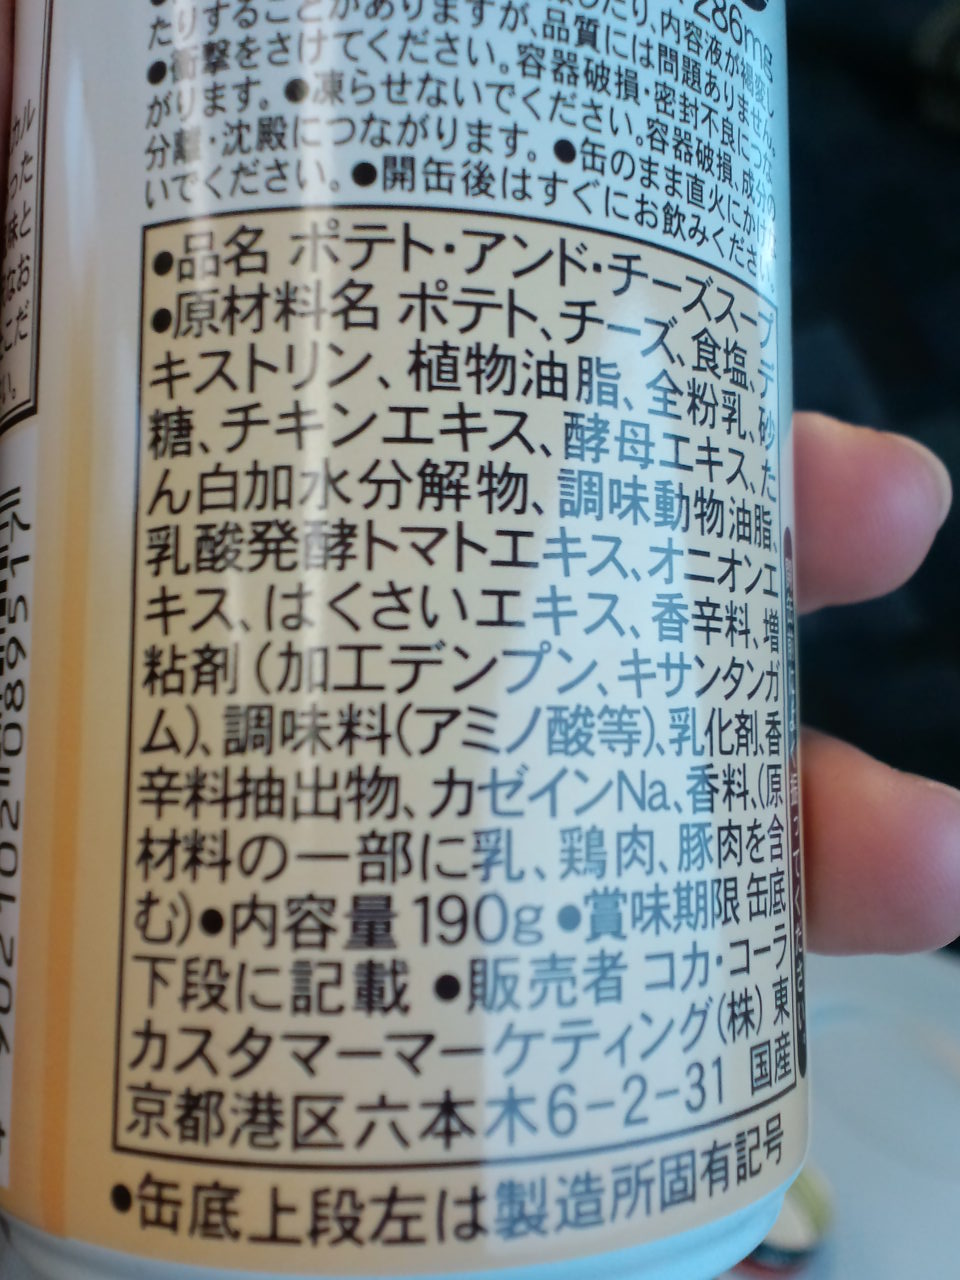 286mg
たりすることがありますが、品質には問題ありません。
●衝撃をさけてください。容器破損・密封不良につな
がります。●凍らせないでください。容器破損、成分の
分離・沈殿につながります。●缶のまま直火にかけな
いでください。●開缶後はすぐにお飲みください。
●品名 ポテト・アンド・チーズスープ
●原材料名 ポテト、チーズ、食塩、デ
キストリン、植物油脂、全粉乳、砂
糖、チキンエキス、酵母エキス、た
ん白加水分解物、調味動物油脂、
乳酸発酵トマトエキス、オニオンエ
キス、はくさいエキス、香辛料、増
粘剤(加工デンプン、キサンタンガ
ム)、調味料(アミノ酸等)、乳化剤、香
辛料抽出物、カゼインNa、香料、(原
材料の一部に乳、鶏肉、豚肉を含
む)●内容量 190g ●賞味期限 缶底
下段に記載 ●販売者 コカ・コーラ
カスタマーマーケティング(株) 東
京都港区六本木6-2-31 国産
●缶底上段左は製造所固有記号